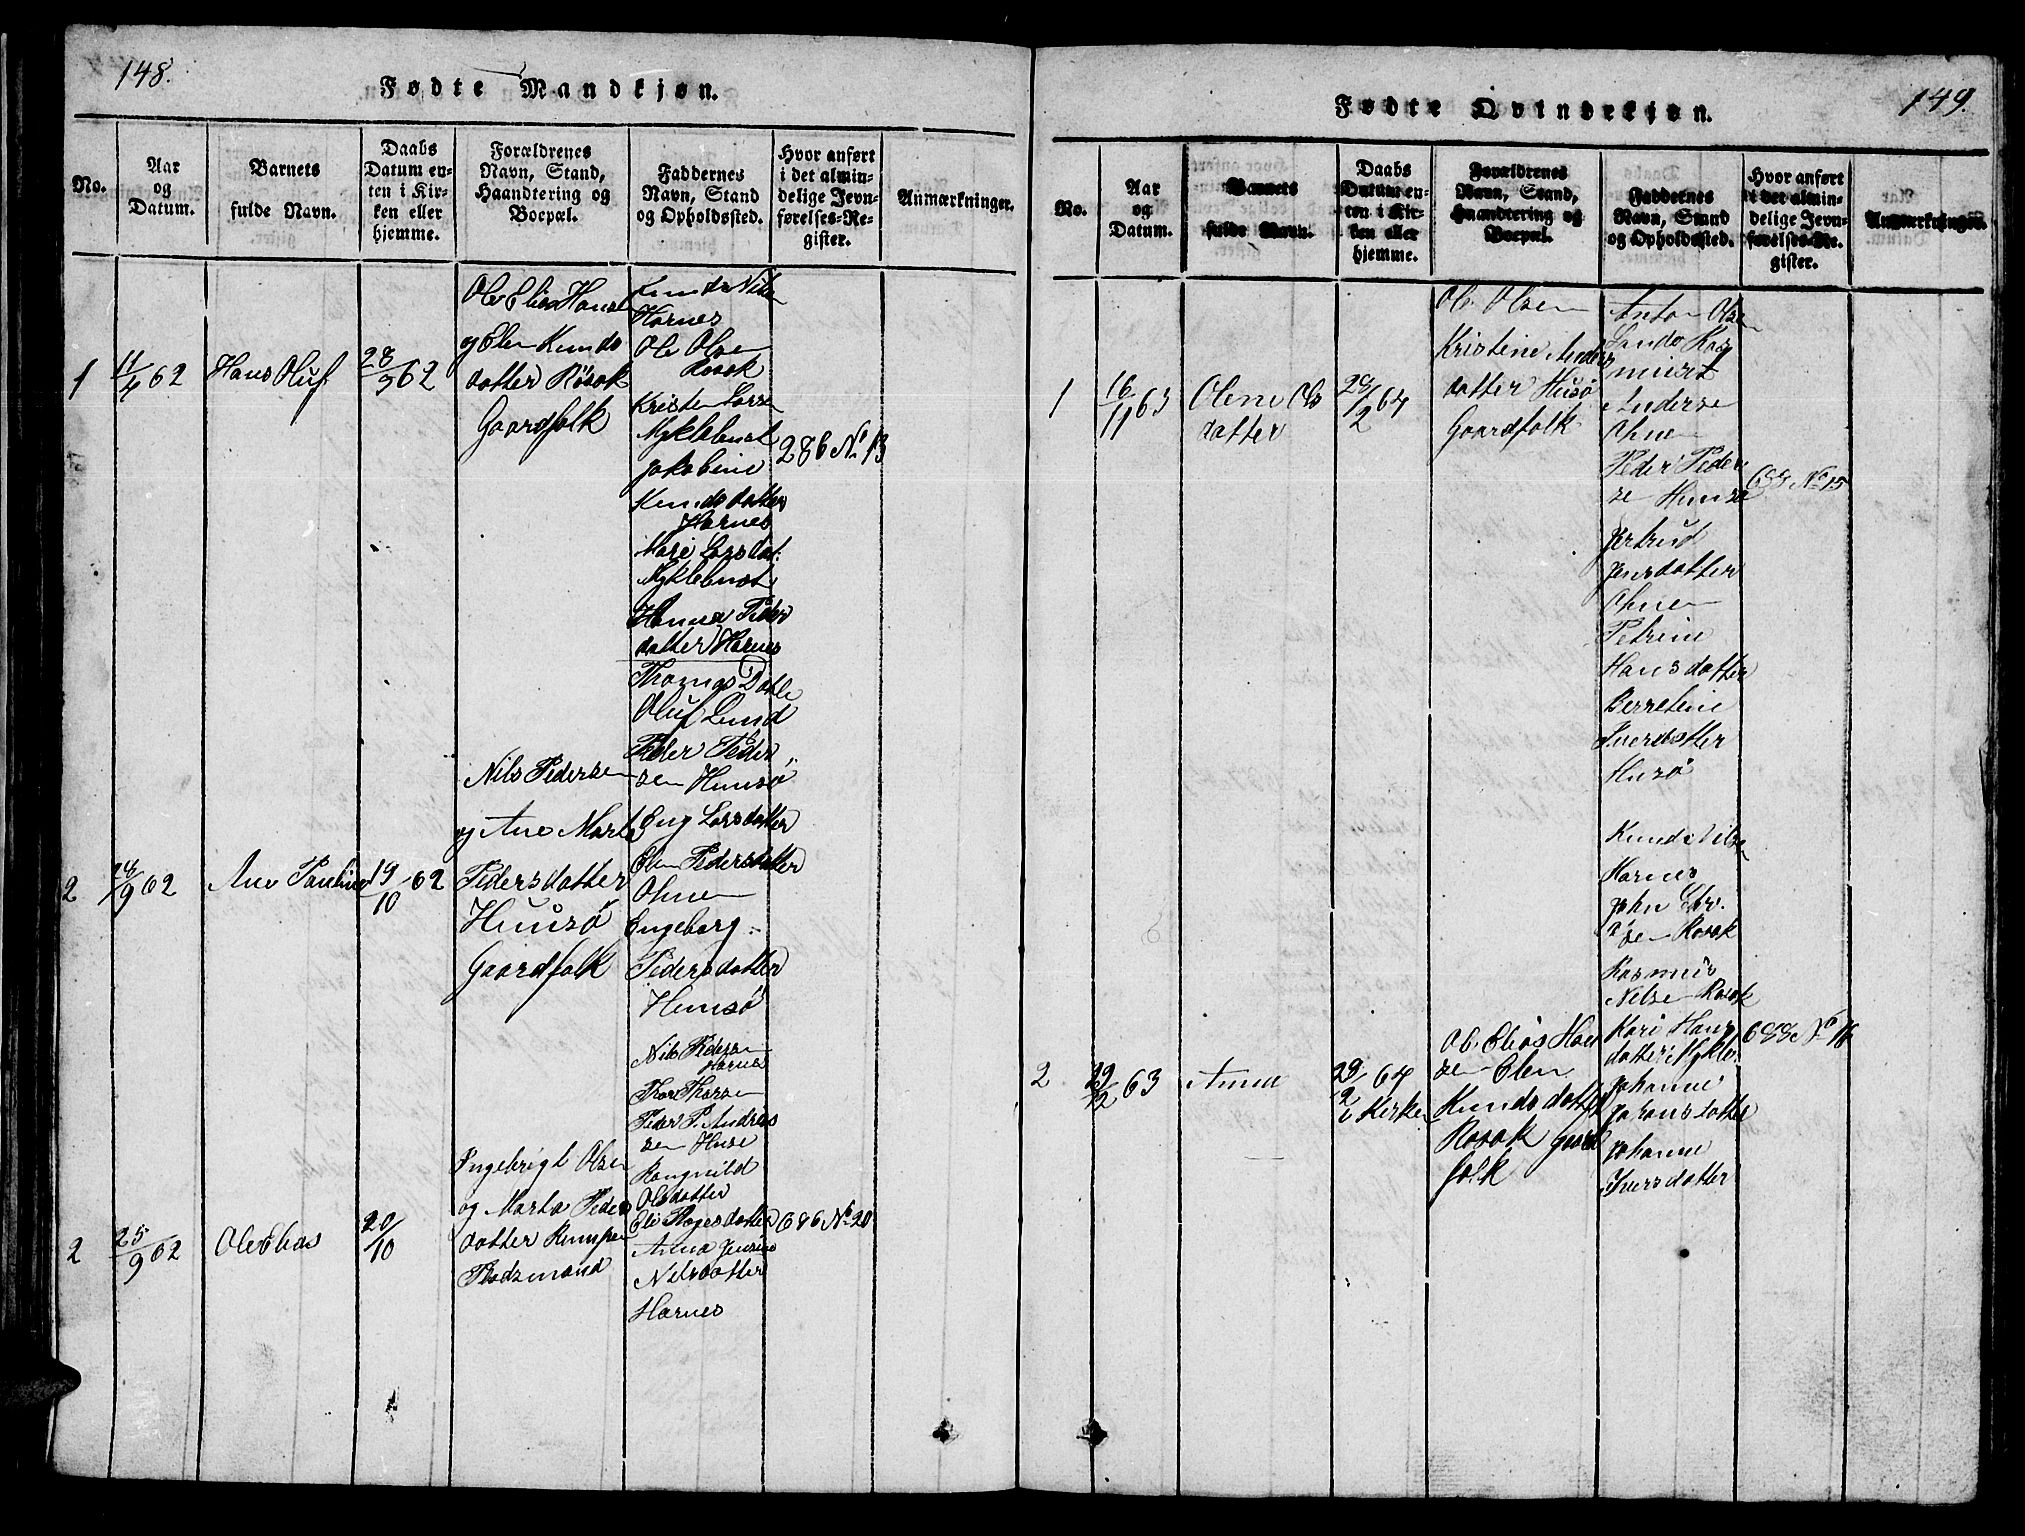 148.
Fødte Mandkjøn.
No.
Aar
og
Datum.
Barnets
fulde Navn.
Daabs
Datum en-
ten i Kir-
ken eller
hjemme.
Forældrenes
Navn, Stand,
Haandtering og
Boepæl.
Faddernes
Navn, Stand
og Opholdssted.
Hvor anført
i det almin-
delige Jevn-
førelses-Re-
gister.
Anmærkninger.
1
11/4 62
Hans Oluf
28/9 62
Ole Elias Hanse
og Elen Knuds
datter Rösok
Gaardfolk
Knud Nilse
Harnes
Ole Olsen
Rosok
Kristen Larsen
Myklebust
Jakobine
Knudsdatter
Harnes
Mari Larsdat:
Myklebust
Hanna Peder
datter Harnes
Thomas Datle
Oluf Lund
286 No 13
2
24/9 62
Ane Pauline
19/10 62
Nils Pedersen
og Ane Marta
Pedersdatter
Huusö
Gaardfolk
Peder Peder
sen Huusö
Eng Larsdatter
Elen Pedersdatter
Ohnen
Engeborg
Pedersdatter
Huusö
2
25/9 62
Ole Elias
20/10
Engebrigt Olsen
og Marta Peders
datter Rumpen
Pladsmand
Nils Pedersen
Harnes
Thor Thorsen
Peder P. Andreas
sen Huse
Rangnild
Olsdatter
Eli Aagesdatter
Anna Jensine
Nilsdatter
Harnes
686 No 20
149.
Fødte Qvindekjøn.
No.
Aar
og
Datum.
Barnets
fulde Navn.
Daabs
Datum en-
ten i Kir-
ken eller
hjemme.
Forældrenes
Navn, Stand,
Haandtering og
Boepæl.
Faddernes
Navn, Stand
og Opholdssted.
Hvor anført
i det almin-
delige Jevn-
førelses-Re-
gister.
Anmærkninger.
1
16/11 63
Oline Ols
datter
29/2 64
Ole Olsen
Kristine Anders
datter Husö
Gaardfolk
Anton Olsen
Sande Ras
mus
Anderse
Ohnen
Peder Peder
se Huusö
Jertrud
Jensdatter
Ohnen
Petrine
Hansdatter
Berretine
Iversdatter
Husö
688 No 15
2
29/12 63
Anna
29/2 64
i Kirken
Ole Elias Han
sen Elen
Knudsdatter
Rosok gaard
folk
Knud Nilsen
Harnes
John
sen Rosok
Rasmus
Nilsen Rosok
Kari Hans
datter Mykleb.
Johanne
Johansdatter
Johanne
Iversdatter
688 No 16